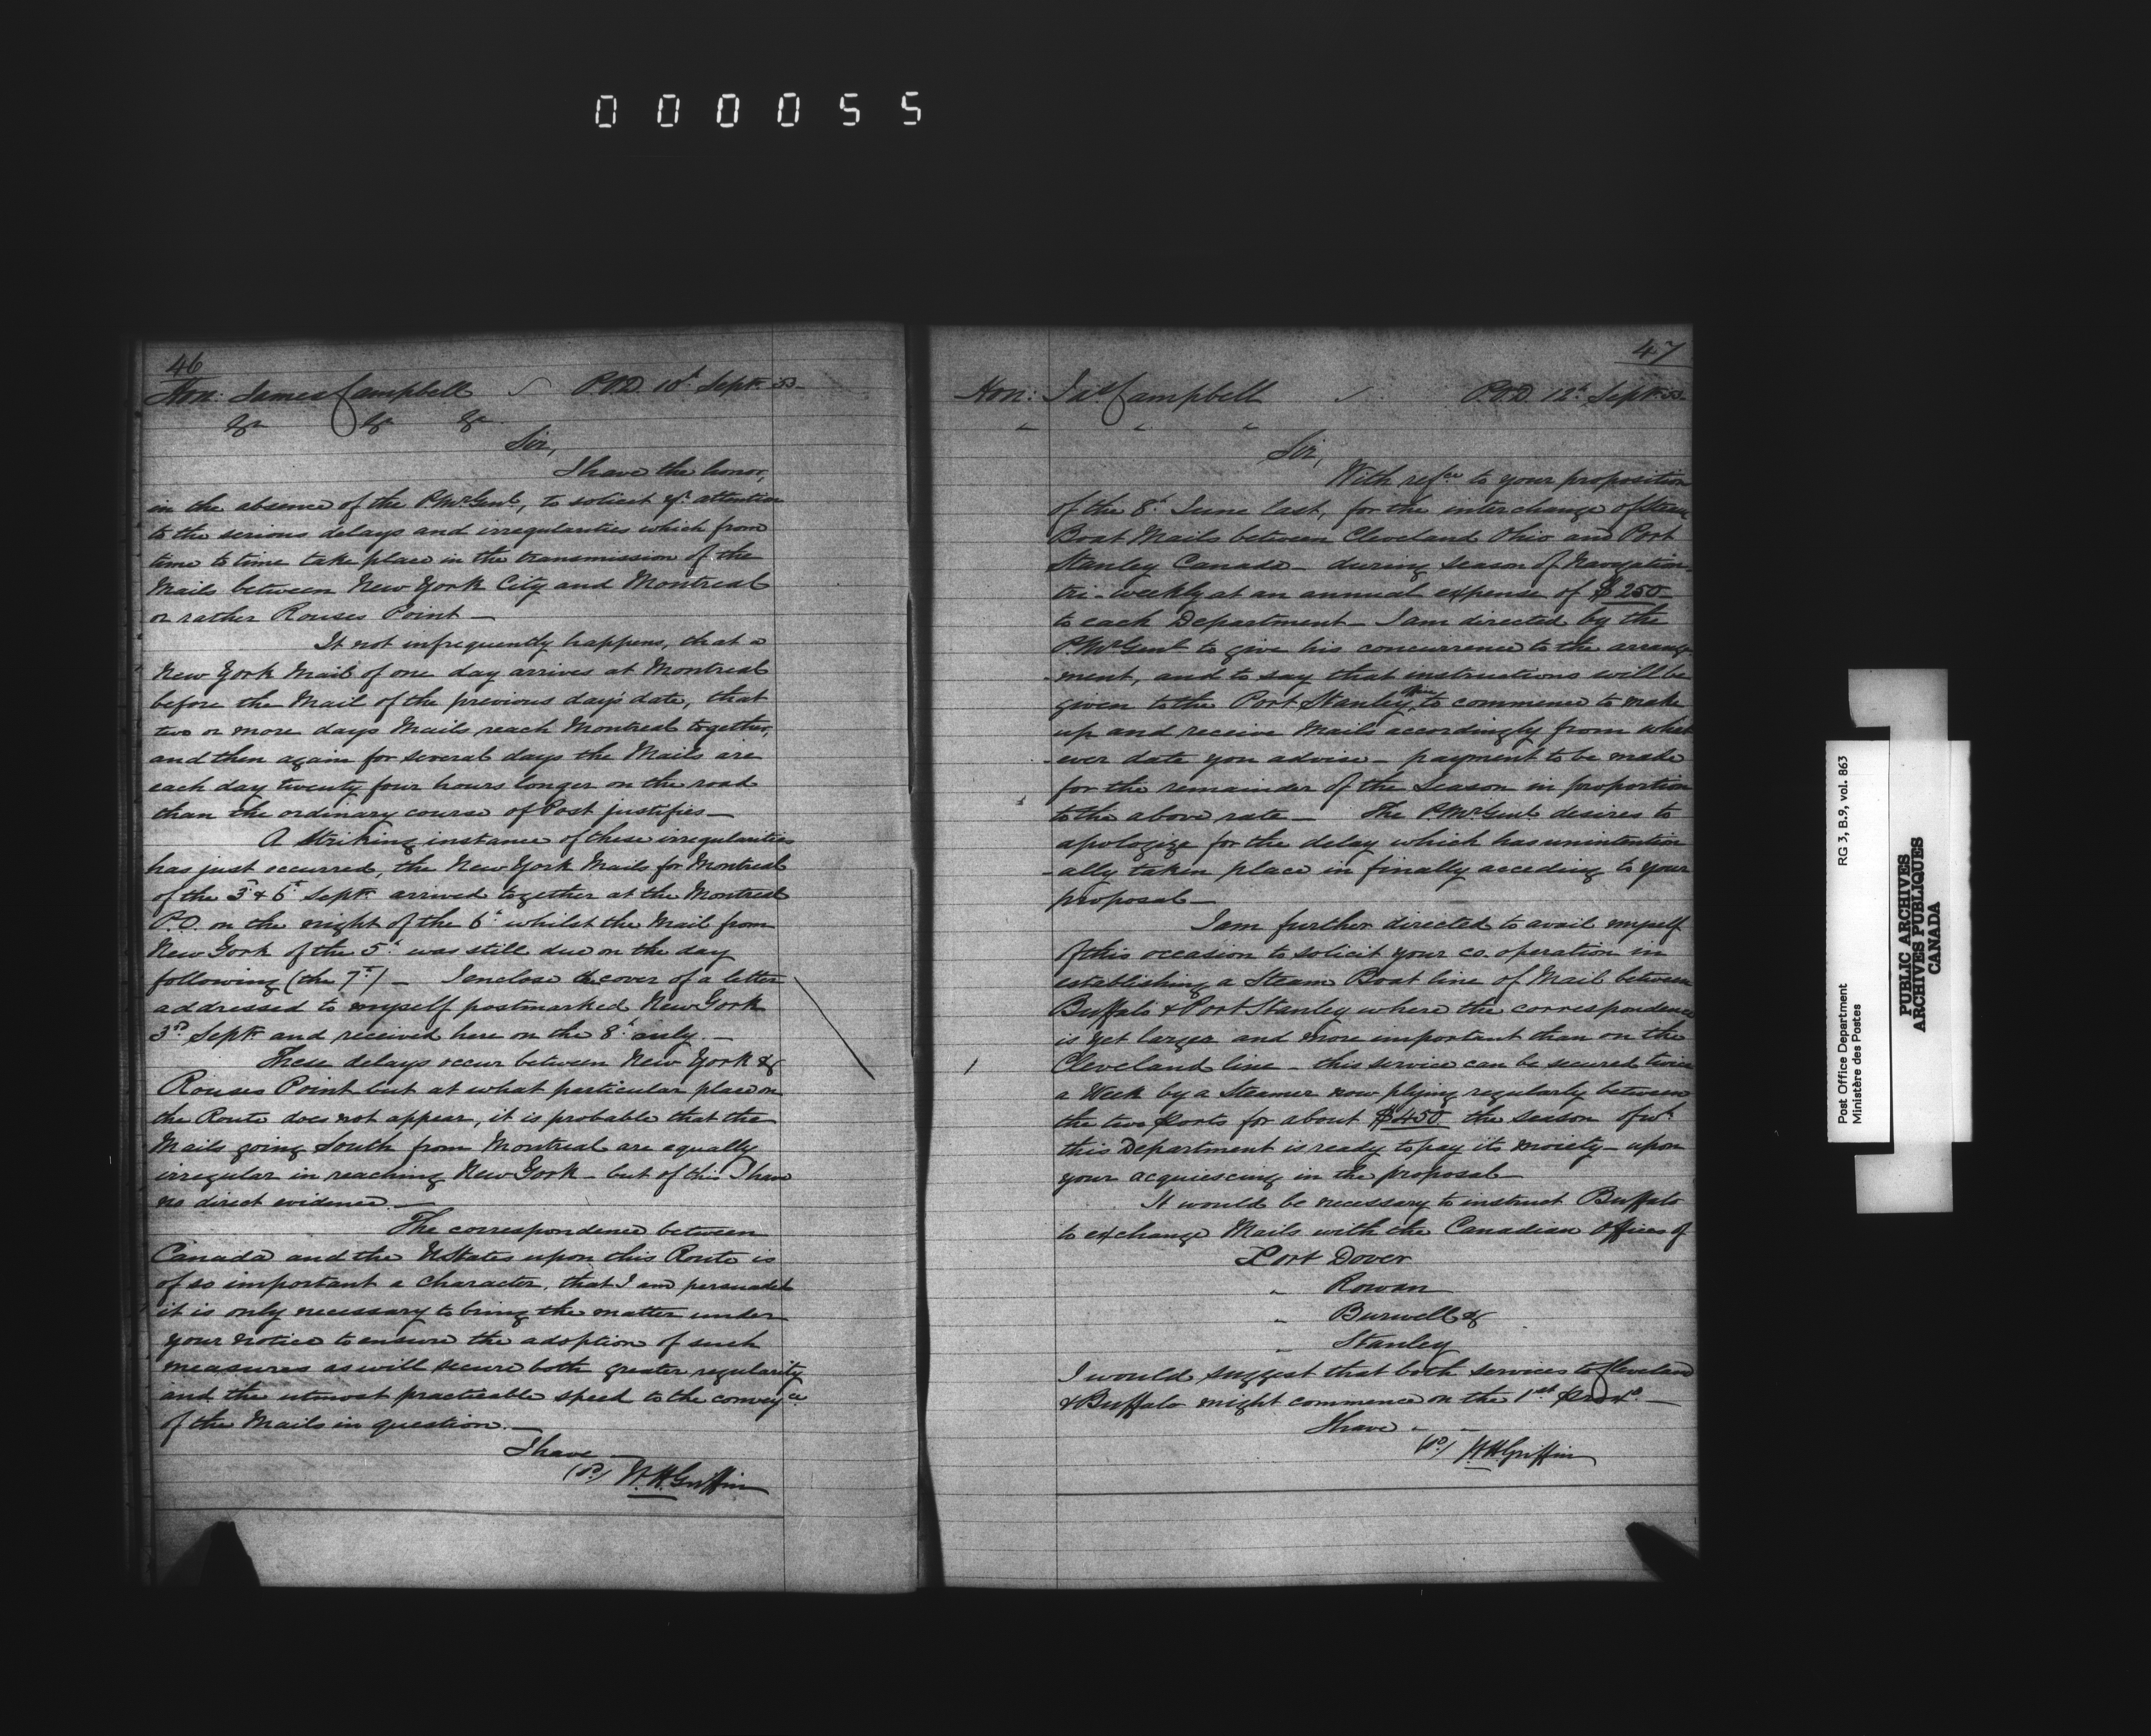 000055
46
Hon: James Campbell P.O.D. 10th Septr 53
&c &c &c
Sir,
I have the honor,
in the absence of the P.Mr Genl, to solicit yr attention
to the serious delays and irregularities which from
time to time take place in the transmission of the
Mails between New York City and Montreal
or rather Rouses Point —
It not infrequently happens, that a
New York Mail of one day arrives at Montreal
before the Mail of the previous day's date, that
two or more days Mails reach Montreal together,
and then again for several days the Mails are
each day twenty four hours longer on the road
than the ordinary course of Post justifies —
A striking instance of these irregularities
has just occurred, the New York Mails for Montreal
of the 3rd & 6th Septr arrived together at the Montreal
P.O. on the night of the 6th whilst the Mail from
New York of the 5th was still due on the day
following (the 7th) — I enclose the cover of a letter
addressed to myself postmarked New York
3rd Septr and received here on the 8th only —
These delays occur between New York &
Rouses Point but at what particular place on
the Route does not appear, it is probable that the
Mails going South from Montreal are equally
irregular in reaching New York — but of this I have
no direct evidence —
The correspondence between
Canada and the U States upon this Route is
of so important a character, that I am persuaded
it is only necessary to bring the matter under
your notice to ensure the adoption of such
measures as will secure both greater regularity
and the utmost practicable speed to the convey ce
of the Mails in question —
I have —
(sd) W. H. Griffin
47
Hon: Jas Campbell P.O.D. 12th Septr 53
" " "
Sir,
With refce to your proposition
of the 8th June last, for the interchange of Steam
Boat Mails between Cleveland Ohio and Port
Stanley Canada — during Season of Navigation
tri-weekly at an annual expense of $250
to each Department — I am directed by the
P.Mr Genl to give his concurrence to the arrange
-ment, and to say that instructions will be
given to the Port Stanley to commence to make
up and receive Mails accordingly from what
-ever date you advise — payment to be made
for the remainder of the Season in proportion
to the above rate — The P.Mr Genl desires to
apologize for the delay which has unintention
-ally taken place in finally acceding to your
proposal —
I am further directed to avail myself
of this occasion to solicit your co. operation in
establishing a Steam Boat line of Mail between
Buffalo & Port Stanley where the correspondence
is yet larger and more important than on the
Cleveland line — this service can be secured twice
a Week by a Steamer now plying regularly between
the two Ports for about $450 the season of wh
this Department is ready to pay its moiety — upon
your acquiescing in the proposal —
It would be necessary to instruct Buffalo
to exchange Mails with the Canadian Offices of
Port Dover
" Rowan
" Burwell &
" Stanley
I would suggest that both services to Cleveland
& Buffalo might commence on the 1st proxo —
I have " "
(sd) W. H. Griffin
Post Office Department
Ministère des Postes
RG 3, B.9, vol. 863
PUBLIC ARCHIVES
ARCHIVES PUBLIQUES
CANADA